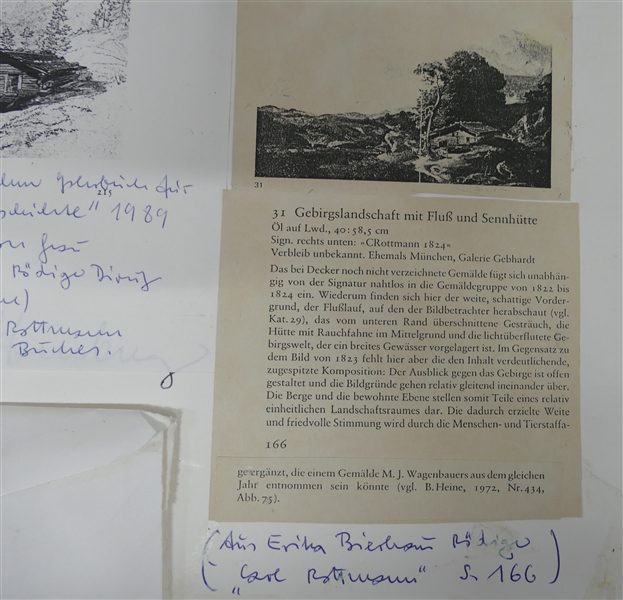 215
1989
Rottmann
Buches.
31
31 Gebirgslandschaft mit Fluß und Sennhütte
Öl auf Lwd., 40:58,5 cm
Sign. rechts unten: »CRottmann 1824«
Verbleib unbekannt. Ehemals München, Galerie Gebhardt
Das bei Decker noch nicht verzeichnete Gemälde fügt sich unabhän-
gig von der Signatur nahtlos in die Gemäldegruppe von 1822 bis
1824 ein. Wiederum finden sich hier der weite, schattige Vorder-
grund, der Flußlauf, auf den der Bildbetrachter herabschaut (vgl.
Kat. 29), das vom unteren Rand überschnittene Gesträuch, die
Hütte mit Rauchfahne im Mittelgrund und die lichtüberflutete Ge-
birgswelt, der ein breites Gewässer vorgelagert ist. Im Gegensatz zu
dem Bild von 1823 fehlt hier aber die den Inhalt verdeutlichende,
zugespitzte Komposition: Der Ausblick gegen das Gebirge ist offen
gestaltet und die Bildgründe gehen relativ gleitend ineinander über.
Die Berge und die bewohnte Ebene stellen somit Teile eines relativ
einheitlichen Landschaftsraumes dar. Die dadurch erzielte Weite
und friedvolle Stimmung wird durch die Menschen- und Tierstaffa-
166
ge ergänzt, die einem Gemälde M. J. Wagenbauers aus dem gleichen
Jahr entnommen sein könnte (vgl. B. Heine, 1972, Nr. 434,
Abb. 75).
(Aus Erika Bierhaus Rödiger)
( "Carl Rottmann" S. 166 )